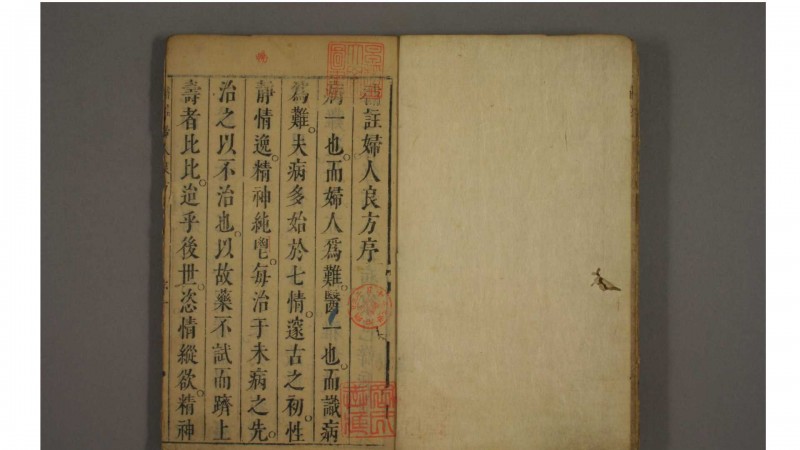 註婦人良方序
病一也。而婦人爲難。醫一也。而識病
爲難。夫病多始於七情。邃古之初。性
静情逸。精神純𡩋。每治于未病之先。
治之以不治也。以故藥不試而躋上
壽者比比。迨乎後世。恣情縱欲。精神